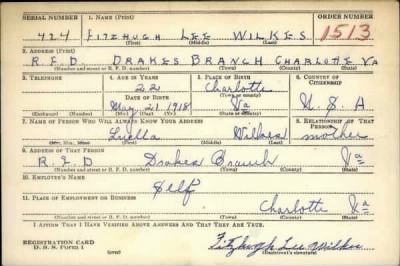 SERIAL NUMBER 1. NAME (Print) ORDER NUMBER
424 FITZHUGH LEE WILKES 1513
(First) (Middle) (Last)
2. ADDRESS (Print)
R.F.D. DRAKES BRANCH CHARLOTTE Va
(Number and street or R. F. D. number) (Town) (County) (State)
3. TELEPHONE 4. AGE IN YEARS 5. PLACE OF BIRTH 6. COUNTRY OF CITIZENSHIP
22 Charlotte
(Town or county)
DATE OF BIRTH
May 21 1918 Va U. S. A
(Mo.) (Day) (Yr.) (State or country)
7. NAME OF PERSON WHO WILL ALWAYS KNOW YOUR ADDRESS 8. RELATIONSHIP OF THAT PERSON
Luella Wilkes mother
(Mr., Mrs., Miss) (First) (Middle) (Last)
9. ADDRESS OF THAT PERSON
R.F.D Drakes Branch Va
(Number and street or R. F. D. number) (Town) (County) (State)
10. EMPLOYER'S NAME
Self
11. PLACE OF EMPLOYMENT OR BUSINESS
Charlotte Va
(Number and street or R. F. D. number) (Town) (County) (State)
I AFFIRM THAT I HAVE VERIFIED ABOVE ANSWERS AND THAT THEY ARE TRUE.
REGISTRATION CARD
D. S. S. Form 1 (over) Fitzhugh Lee Wilkes
(Registrant's signature)